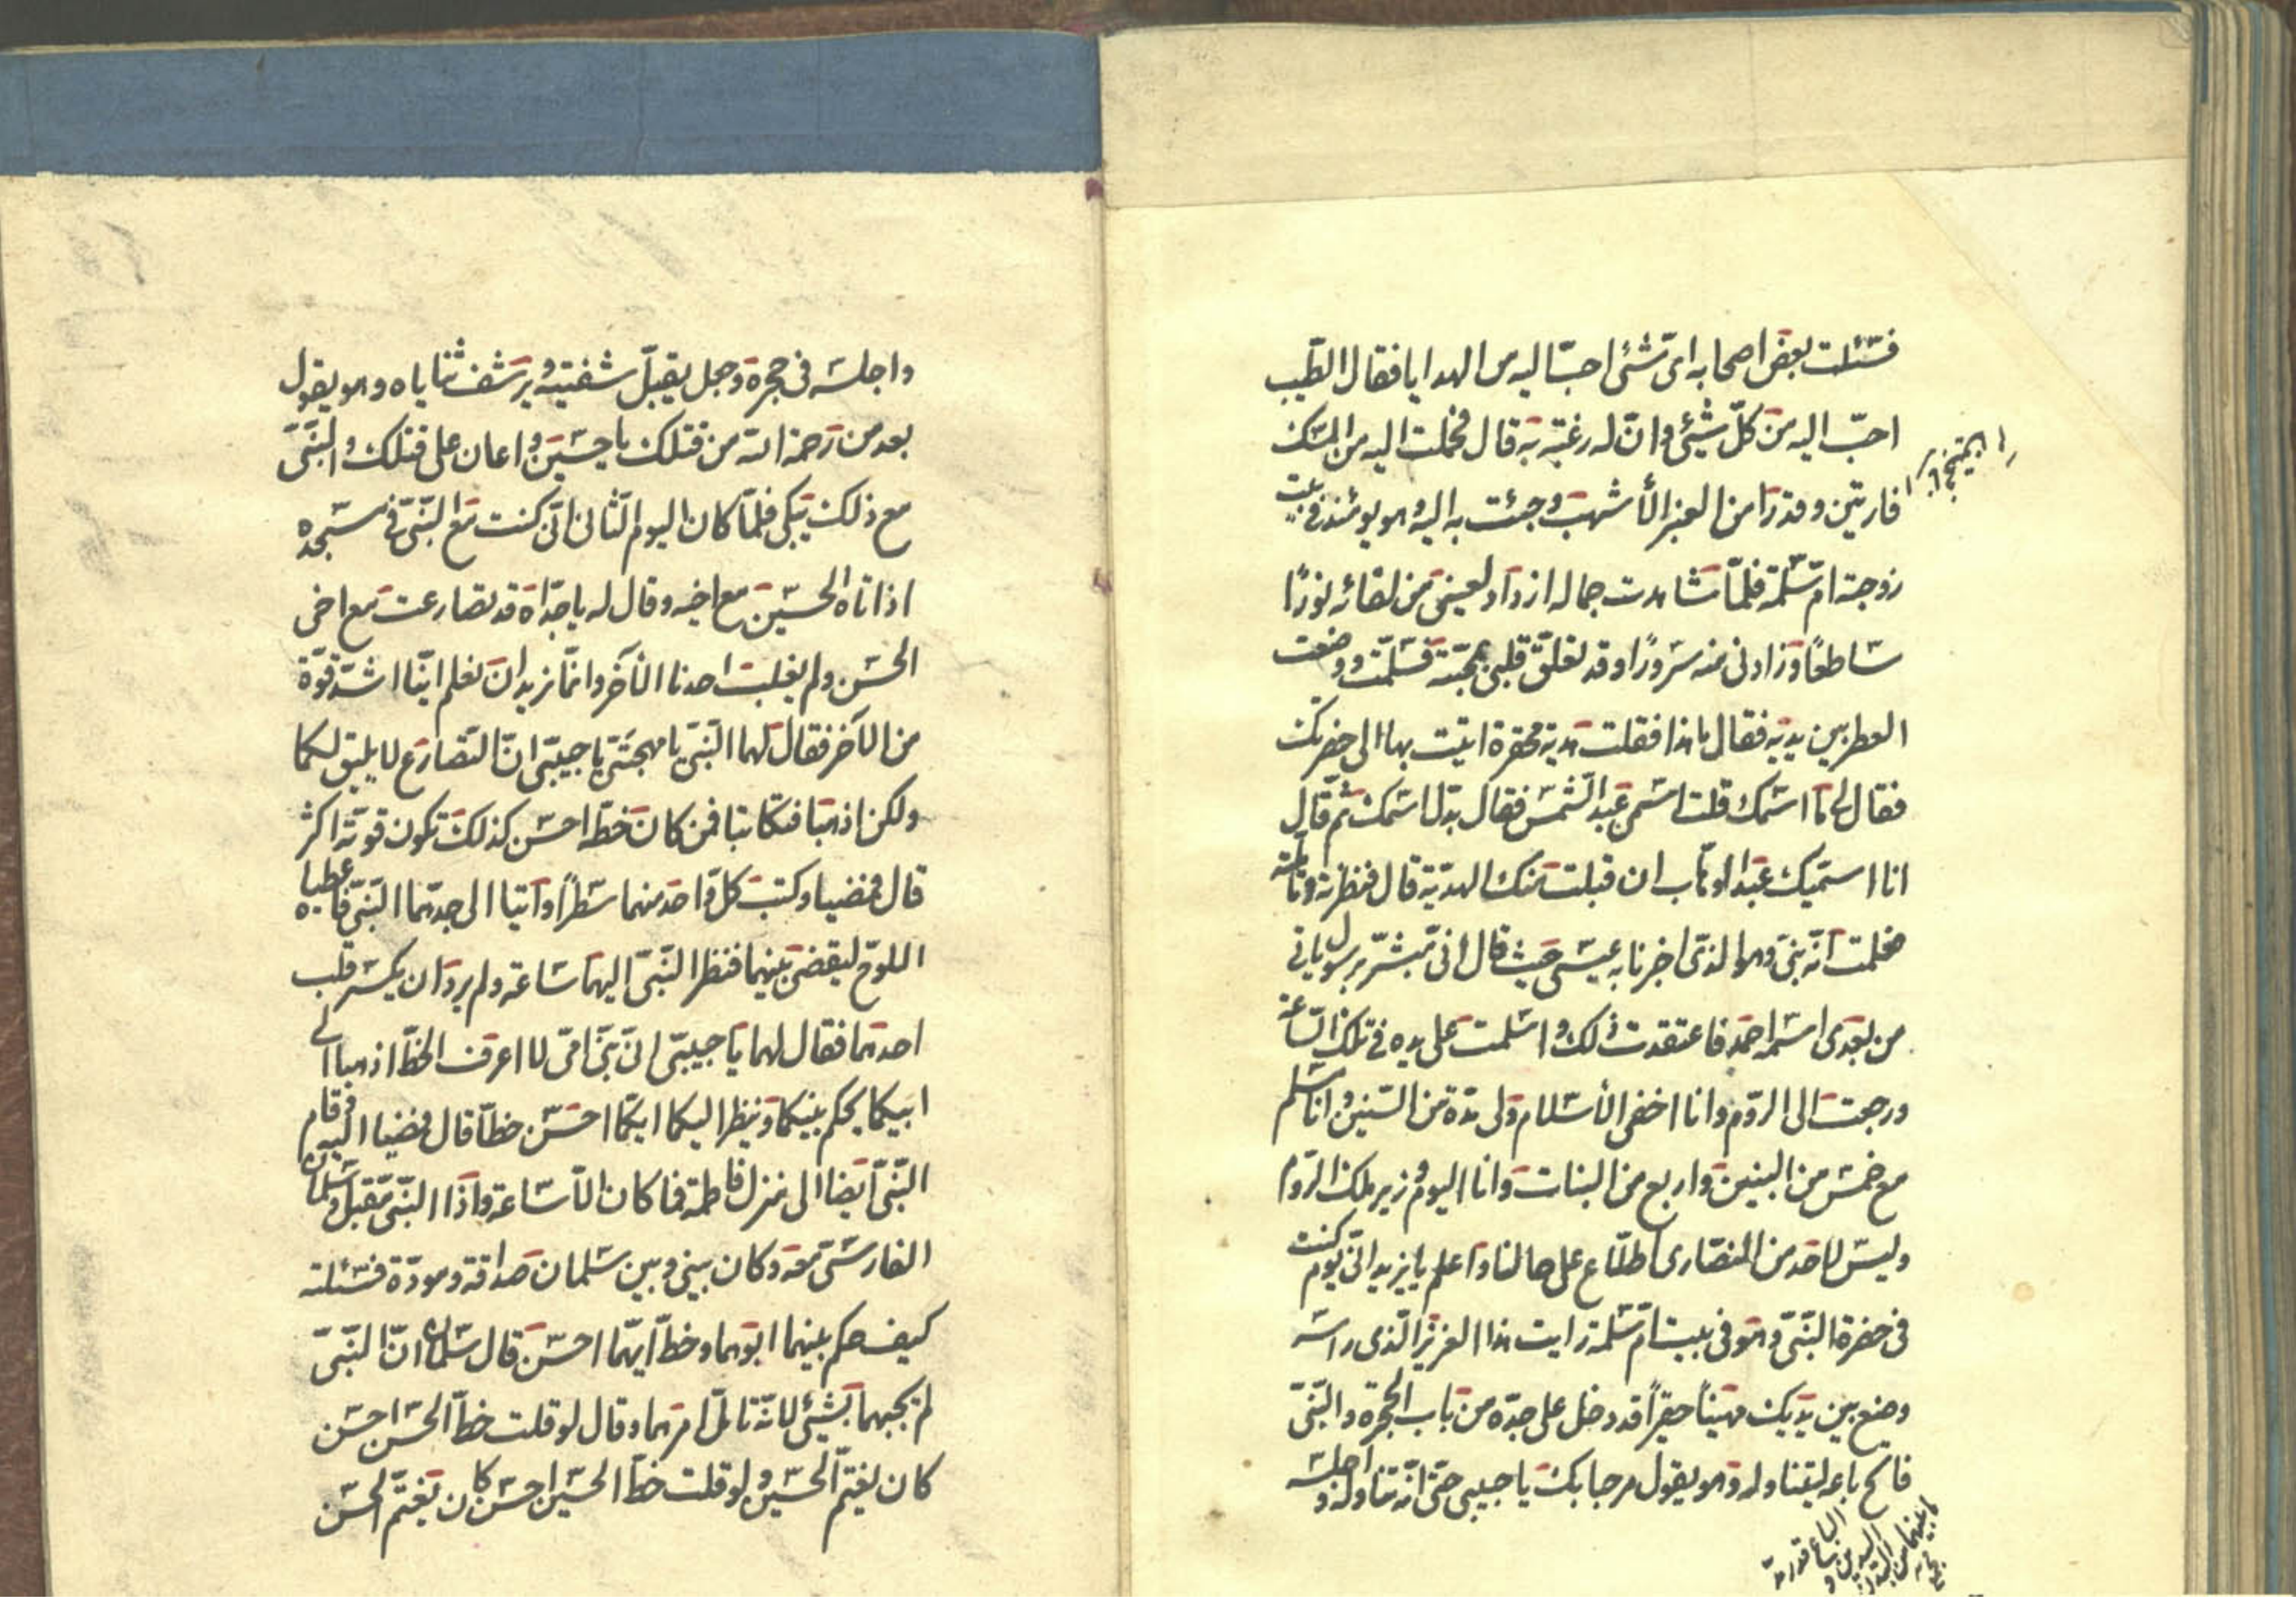 فسئلت بعض اصحابه ای شئ احبّ الیه من الهدایا فقال الطّیب
احبّ الیه من کلّ شیئ وانّ له رغبة به قال فحملت الیه من المسک
فارتین وقدرًا من العنبر الأشهب وجئت به الیه وهو یومئذ فی بیت
زوجته امّ سلمة فلمّا شاهدت جماله ازداد لعینی من لقائه نورًا
ساطعًا وزادنی منه سرورًا وقد تعلّق قلبی بمحبّته فسلّمت ووضعت
العطر بین یدیه فقال ما هذا فقلت هدیّة محقرة اتیت بها الی حضرتک
فقال لی ما اسمک قلت اسمی عبد الشّمس فقال بدّل اسمک ثم قال
انا اسمّیک عبد الوهّاب ان قبلت منک الهدیّة قال فنظرته وتأملته
فعلمت انّه نبیّ وهو الذّی اخبرنا به عیسی حیث قال انّی مبشّر برسول یاتی
من بعدی اسمه احمد فاعتقدت ذلک واسلمت علی یده فی تلک السّاعة
ورجعت الی الرّوم وانا اخفی الأسلام ولی مدّة من السّنین وانا مسلم
مع خمس من البنین واربع من البنات وانا الیوم وزیر ملک الرّوم
ولیس لاحد من النّصاری اطّلاع علی حالنا واعلم یا یزید انّی یوم کنت
فی حضرة النّبیّ وهو فی بیت امّ سلمة رایت هذا العزیز الّذی راسه
وضع بین یدیک مهینًا حقیرًا قد دخل علی جدّه من باب الحجرة والنّبیّ
فاتح باعه لیتناوله وهو یقول مرحبا بک یا حبیبی حتّی انّه تناوله واجلسه
واجلسه فی حجره وجعل یقبّل شفتیه ویرشف ثنایاه وهو یقول
بعد من رحمة الله من قتلک یا حسین واعان علی قتلک والنّبیّ
مع ذلک یبکی فلمّا کان الیوم الثّانی انّی کنت مع النّبیّ فی مسجده
اذ اتاه الحسین مع اخیه وقال له یا جدّاه قد تصارعت مع اخی
الحسن ولم یغلب احدنا الآخر وانّما نرید ان نعلم ایّنا اشدّ قوّة
من الآخر فقال لهما النّبیّ یا مهجتیّ یا حبیبیّ انّ التّصارع لا یلیق لکما
ولکن اذهبا فتکاتبا فمن کان خطّه احسن کذلک تکون قوّته اکثر
قال فمضیا وکتب کلّ واحد منهما سطرًا وأتیا الی جدّهما النّبیّ فاعطیاه
اللّوح لیقضی بینهما فنظر النّبیّ الیهما ساعة ولم یرد ان یکسر قلب
احدهما فقال لهما یا حبیبیّ انّی نبیّ امّیّ لا اعرف الخطّ اذهبا الی
ابیکما یحکم بینکما وینظر الیکما ایّکما احسن خطّا قال فمضیا الیه وقام
النّبیّ ایضا الی منزل فاطمة فما کان الّا ساعة واذا النّبیّ مقبل وسلمان
الفارسیّ معه وکان بینی وبین سلمان صداقة ومودّة فسئلته
کیف حکم بینهما ابوهما وخطّ ایّهما احسن قال سلمان انّ النّبیّ
لم یجبهما بشیئ لانّه تامّل امرهما وقال لو قلت خطّ الحسن احسن
کان یغتمّ الحسین ولو قلت خطّ الحسین احسن کان یغتمّ الحسن